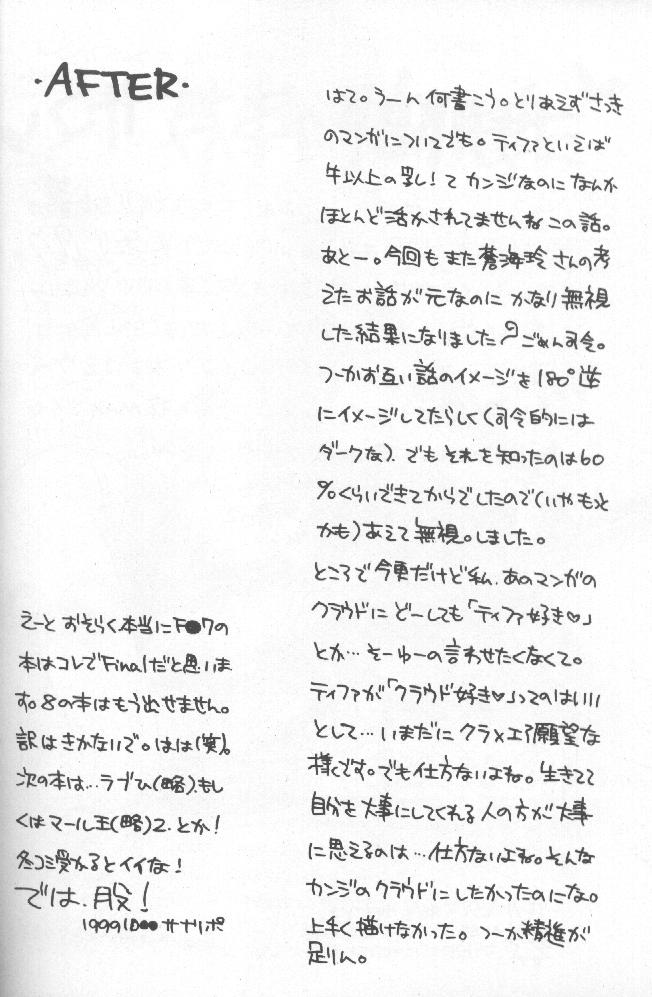 ・AFTER・
はて。うーん 何書こう。とりあえずさっき
のマンガについてでも。ティファといえば
牛以上の乳し!て カンジなのに なんか
ほとんど活かされてませんね この話。
あとー。今回も また 蒼海玲 さんの考
えたお話が元なのに かなり無視
した結果になりました ごめん司令。
つーかお互い話のイメージを180°逆
にイメージしてたらしく(司令的には
ダークな)、でも それを知ったのは60
%くらいできてからでしたので(いやもっと
かも)あえて無視。しました。
ところで今更だけど私、あのマンガの
クラウドに どーしても「ティファ好き♡」
とか…そーゆーの言わせたくなくて。
ティファが「クラウド好き♡」ってのはいい
として…いまだに クラ×エア願望な
様です。でも仕方ないよね。生きてて
自分を大事にしてくれる人の方が大事
に思えるのは…仕方ないよね。そんな
カンジのクラウドにしたかったのにな。
上手く描けなかった。つーか精進が
足りん。
えーと おそらく本当にF●7の
本はコレでFinalだと思いま
す。8の本はもう出せません。
訳はきかないで。はは(笑)。
次の本は…ラブひ(略)、もし
くはマール王(略)2、とか!
冬コミ受かるとイイな!
では、股!
1999 10●● サナリポ